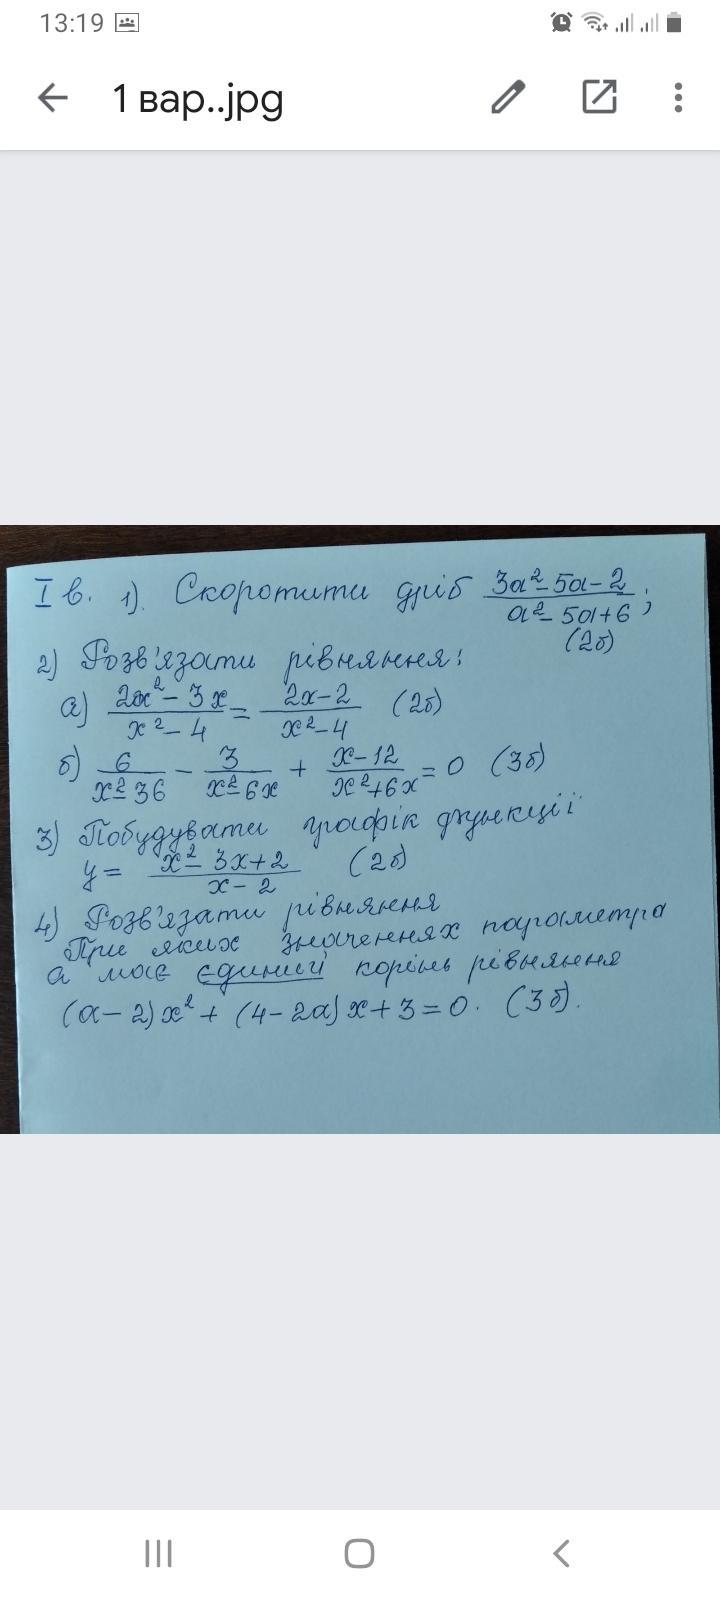 13:19
1 вар..jpg
I в. 1). Скоротити дріб (3a² - 5a - 2)/(a² - 5a + 6);
(2б)
2) Розв'язати рівняння:
а) (2x² - 3x)/(x² - 4) = (2x - 2)/(x² - 4) (2б)
б) 6/(x² - 36) - 3/(x² - 6x) + (x - 12)/(x² + 6x) = 0 (3б)
3) Побудувати графік функції
y = (x² - 3x + 2)/(x - 2) (2б)
4) Розв'язати рівняння
При яких значеннях параметра
а має єдиний корінь рівняння
(a - 2)x² + (4 - 2a)x + 3 = 0. (3б).